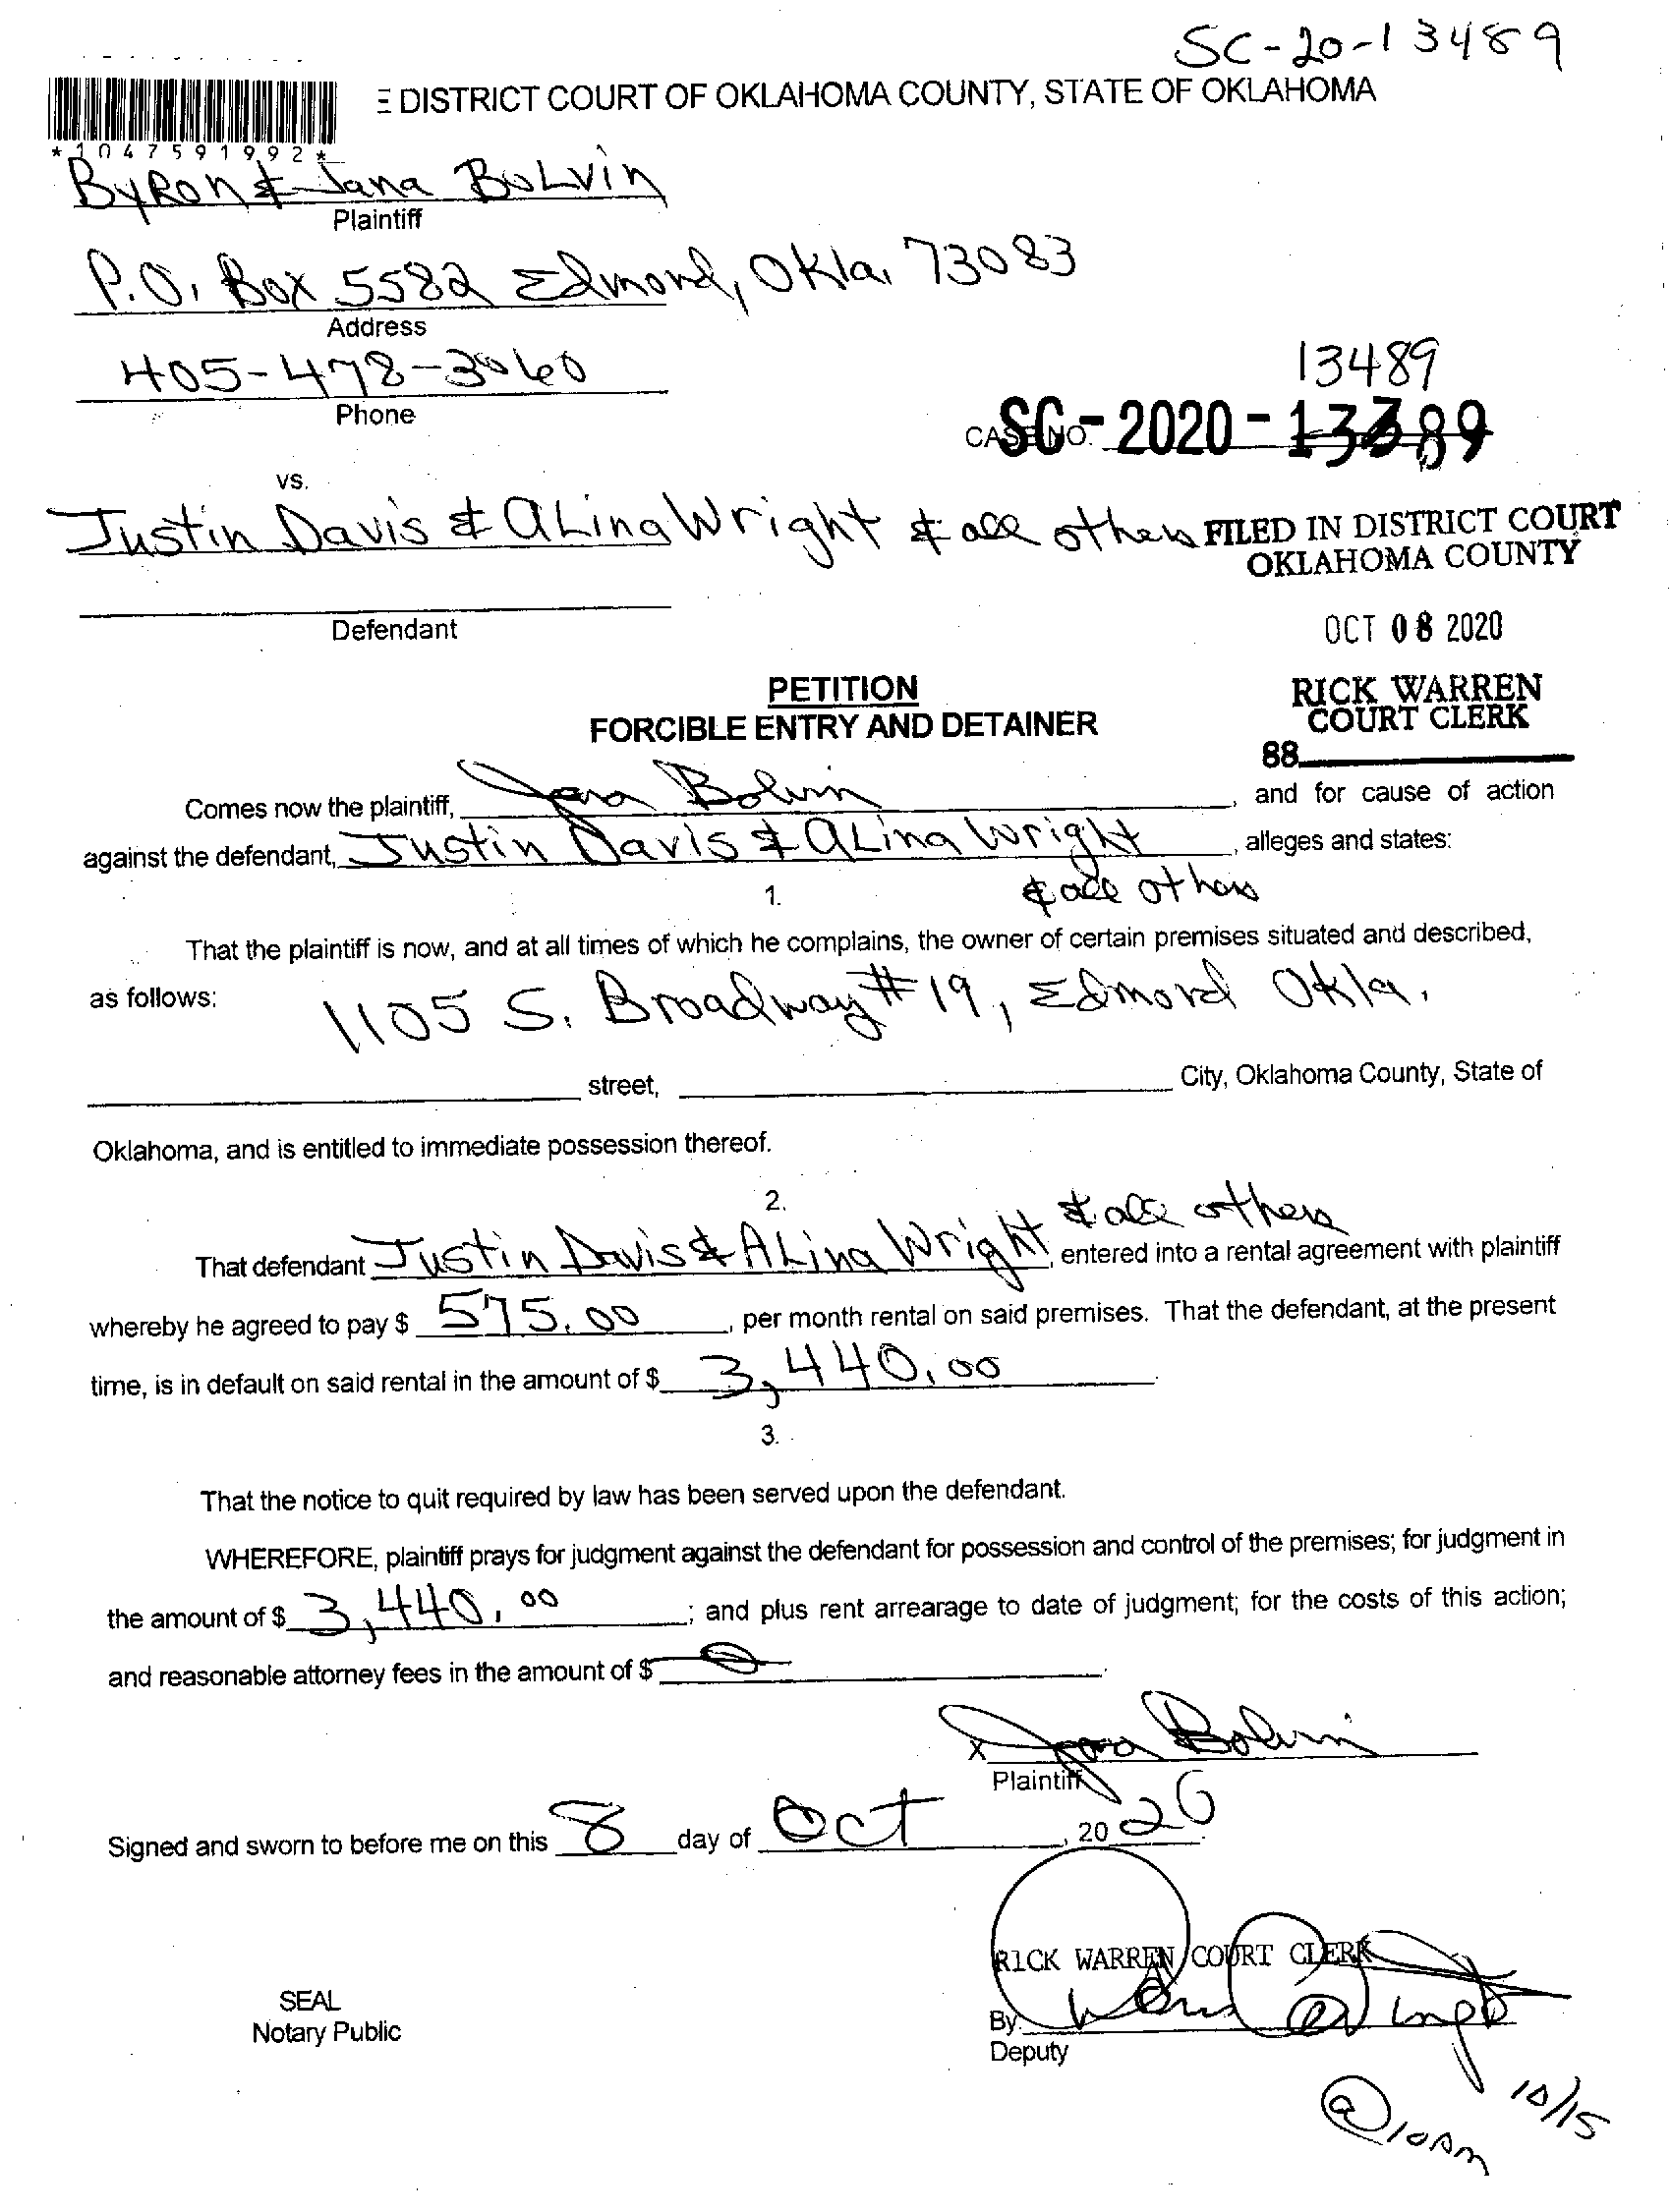 SC-20-13489
E DISTRICT COURT OF OKLAHOMA COUNTY, STATE OF OKLAHOMA
*1047591992*
Byron & Jana Bolvin
Plaintiff
P.O. Box 5582 Edmond, Okla. 73083
Address
405-478-3060
Phone
13489
CASE NO. SC-2020-13389
vs.
Justin Davis & ALina Wright & all others
FILED IN DISTRICT COURT
OKLAHOMA COUNTY
Defendant
OCT 08 2020
PETITION
FORCIBLE ENTRY AND DETAINER
RICK WARREN
COURT CLERK
88
Comes now the plaintiff, Jana Bolvin, and for cause of action
against the defendant, Justin Davis & ALina Wright, alleges and states:
& all others
1.
That the plaintiff is now, and at all times of which he complains, the owner of certain premises situated and described,
as follows: 1105 S. Broadway #19, Edmond Okla.
street, City, Oklahoma County, State of
Oklahoma, and is entitled to immediate possession thereof.
2.
& all others
That defendant Justin Davis & ALina Wright, entered into a rental agreement with plaintiff
whereby he agreed to pay $ 575.00, per month rental on said premises. That the defendant, at the present
time, is in default on said rental in the amount of $ 3,440.00.
3.
That the notice to quit required by law has been served upon the defendant.
WHEREFORE, plaintiff prays for judgment against the defendant for possession and control of the premises; for judgment in
the amount of $ 3,440.00; and plus rent arrearage to date of judgment; for the costs of this action;
and reasonable attorney fees in the amount of $ 0.
X Jana Bolvin
Plaintiff
Signed and sworn to before me on this 8 day of Oct, 2020.
RICK WARREN COURT CLERK
SEAL
Notary Public
By:
Deputy
@ 10 Am 10/15